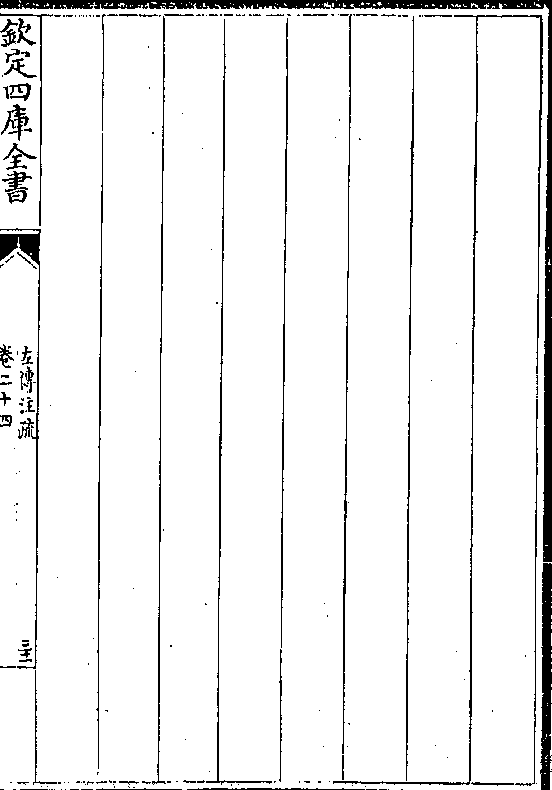 欽定四庫全書
左傳注疏
卷二十四